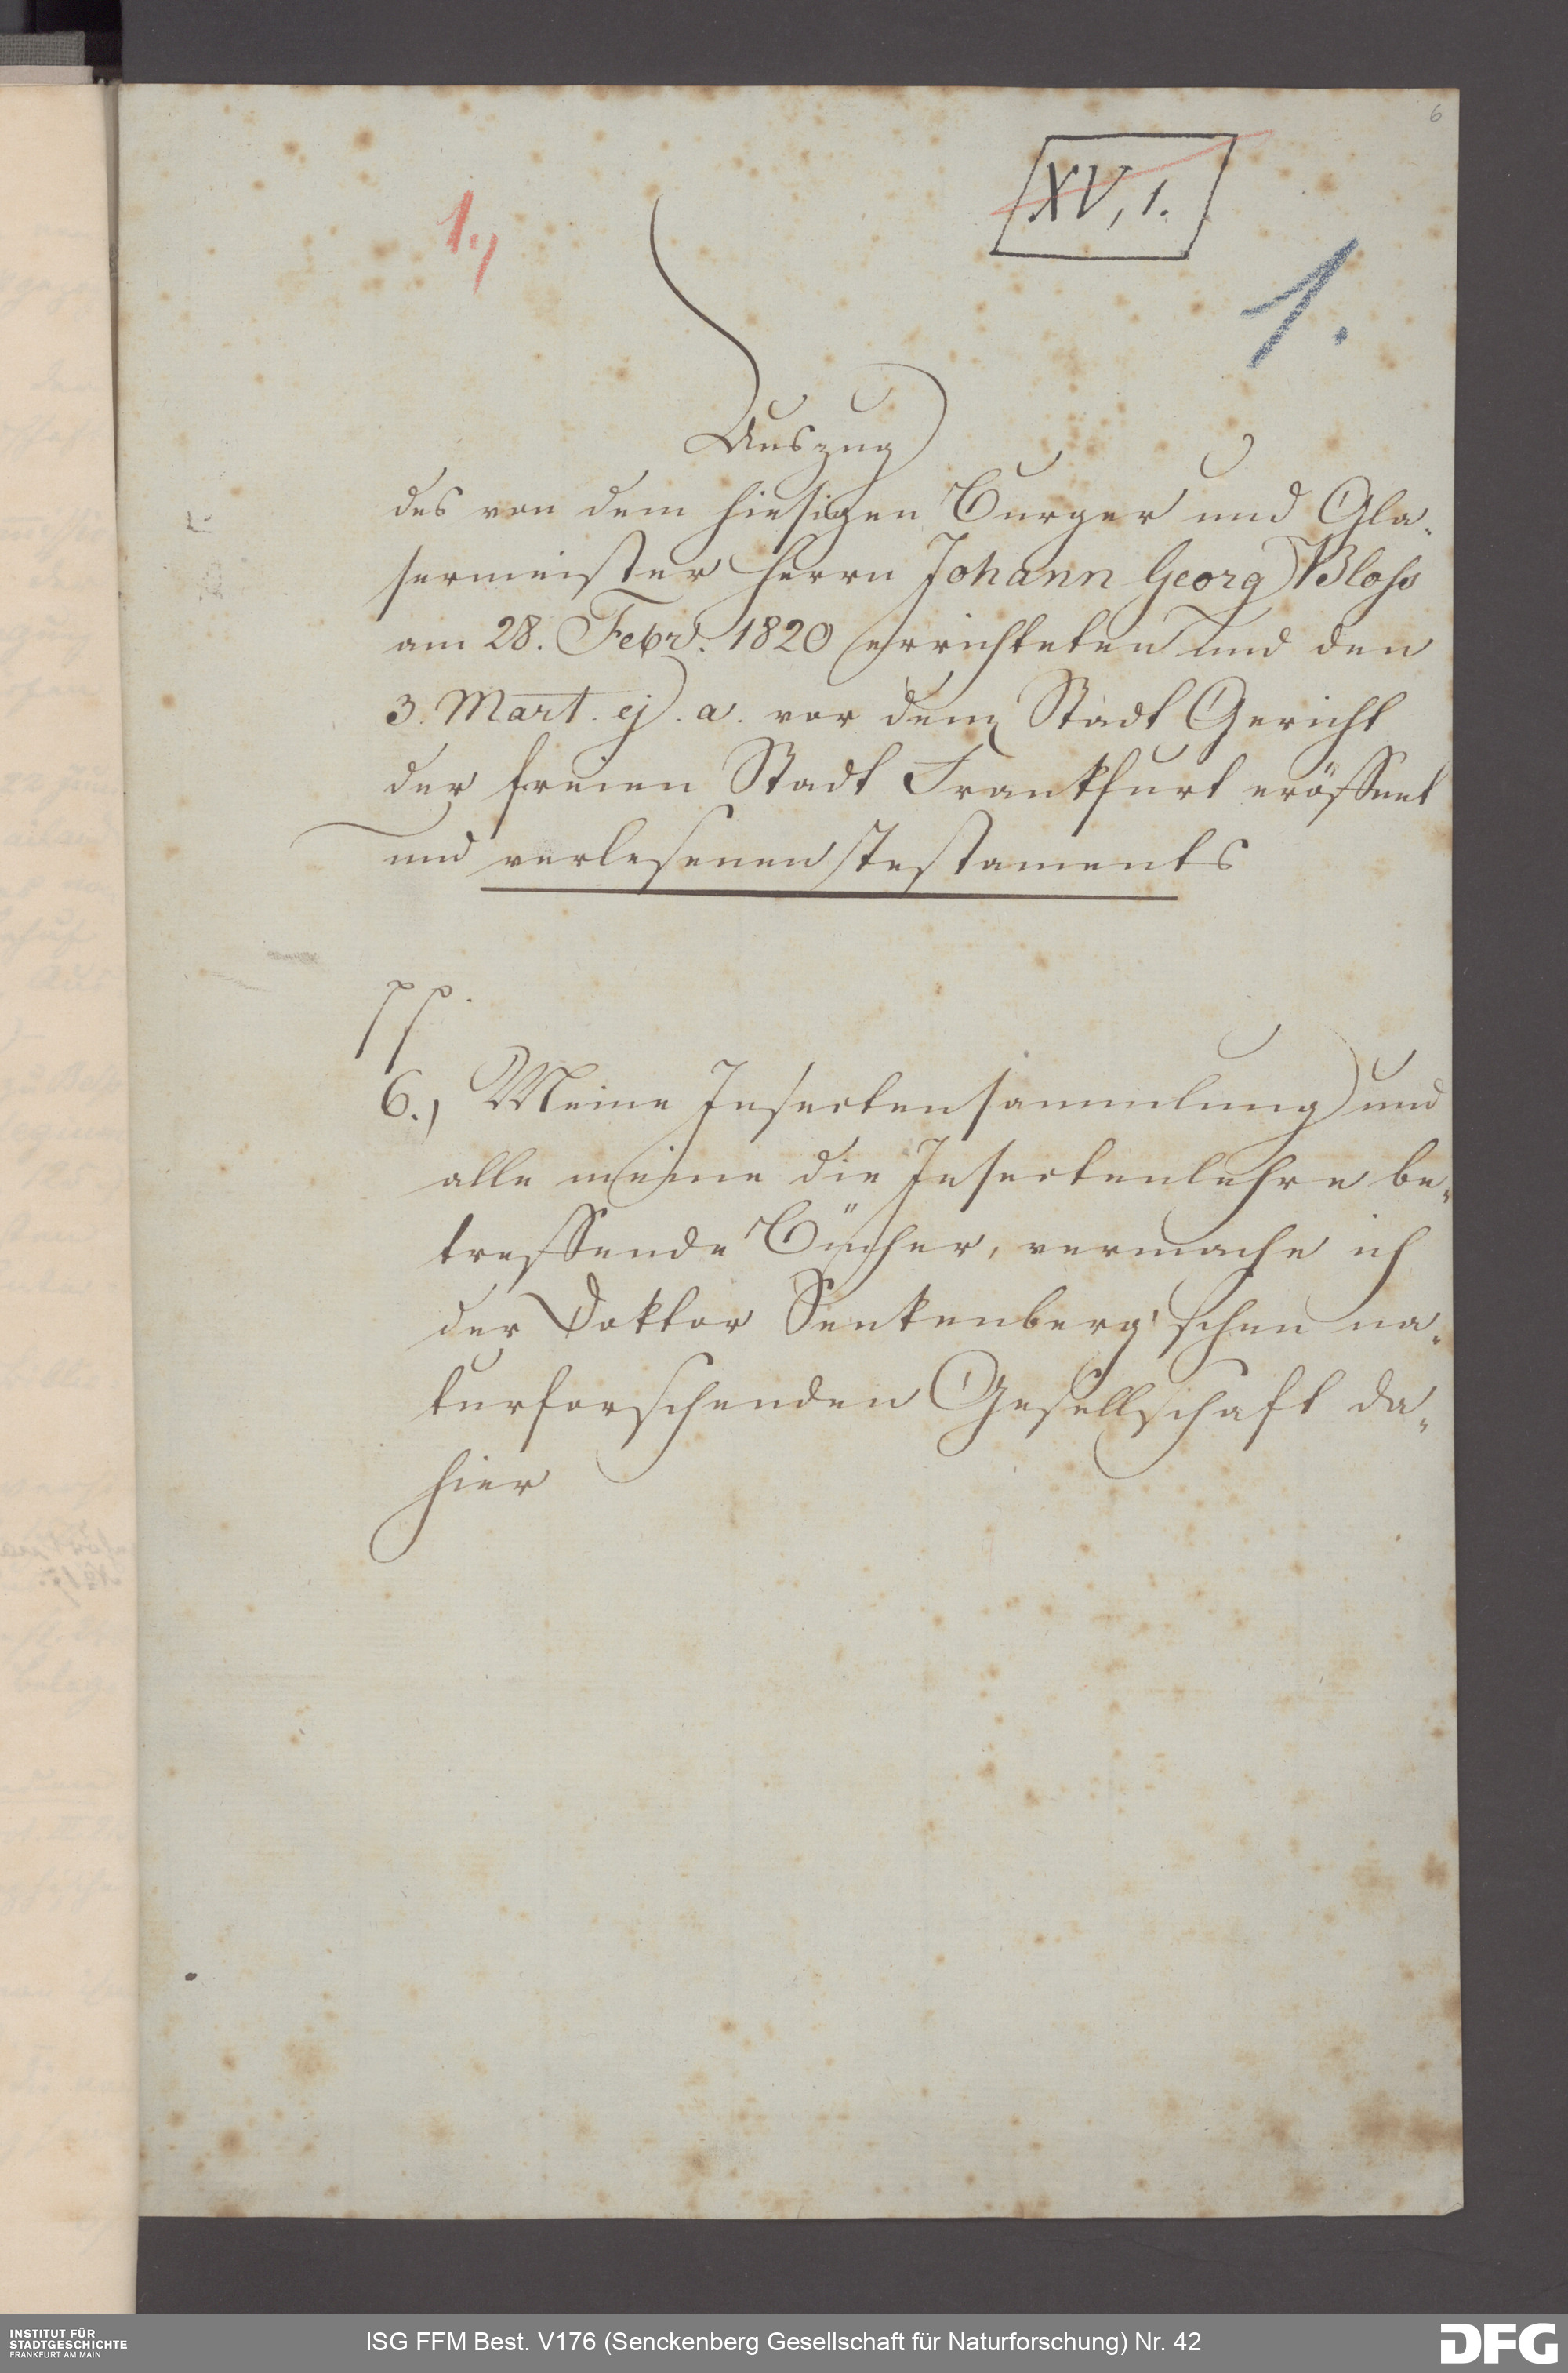 6
XV, 1.
1.)
1.
Auszug
des von dem hiesigen Burger und Gla-
sermeister Herrn Johann Georg Bloss
am 28. Febr. 1820 errichteten und den
3. Mart. ej. a. vor dem Stadt Gericht
der freien Stadt Frankfurt eröffnet
und verlesenen Testaments
pp.
6.) Meine Insectensammlung und
alle meine die Insectenlehre be-
treffende Bücher, vermache ich
der Doktor Senkenberg'schen na-
turforschenden Gesellschaft da-
hier
INSTITUT FÜR
STADTGESCHICHTE
FRANKFURT AM MAIN
ISG FFM Best. V176 (Senckenberg Gesellschaft für Naturforschung) Nr. 42
DFG